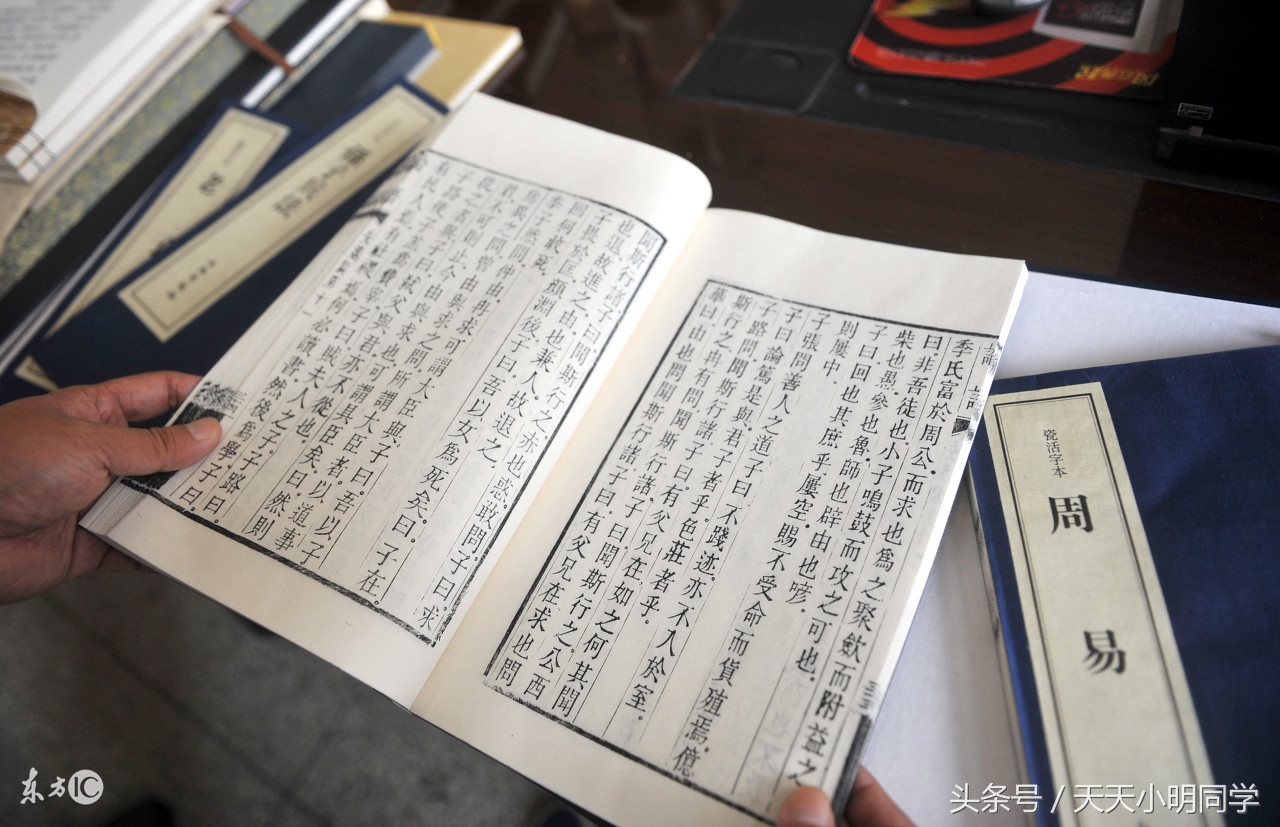 季氏富於周公。而求也爲之聚斂而附益之
曰非吾徒也。小子鳴鼓而攻之可也。
柴也愚。參也魯。師也辟。由也喭。
子曰回也其庶乎。屢空。賜不受命而貨殖焉。億
則屢中。
子張問善人之道。子曰。不踐迹。亦不入於室。
子曰。論篤是與。君子者乎。色莊者乎。
子路問聞斯行諸。子曰。有父兄在。如之何其聞
斯行之。冉有問聞斯行諸。子曰。聞斯行之。公西
華曰。由也問聞斯行諸。子曰。有父兄在。求也問
聞斯行諸。子曰。聞斯行之。赤也惑。敢問。子曰。求
也退。故進之。由也兼人。故退之。
子畏於匡。顏淵後。子曰。吾以女爲死矣。曰。子在。
回何敢死。
季子然問。仲由冉求可謂大臣與。子曰。吾以子
爲異之問。曾由與求之問。所謂大臣者。以道事
君。不可則止。今由與求也。可謂具臣矣。曰。然則
從之者與。子曰。弒父與君。亦不從也。
子路使子羔爲費宰。子曰。賊夫人之子。子路曰。
有民人焉。有社稷焉。何必讀書。然後爲學。子曰。
瓷活字本
周易
东方IC
头条号 / 天天小明同学